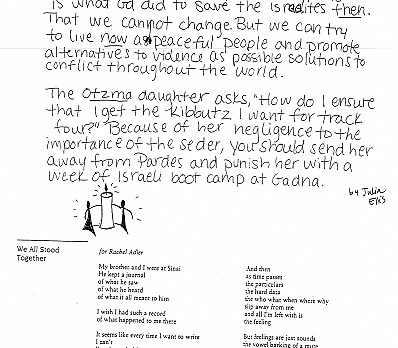 is what Gd did to save the Israelites then.
That we cannot change. But we can try
to live now as peaceful people and promote
alternatives to violence as possible solutions to
conflict throughout the world.
The Otzma daughter asks, "How do I ensure
that I get the Kibbutz I want for track
four?" Because of her negligence to the
importance of the seder, you should send her
away from Pardes and punish her with a
week of Israeli boot camp at Gadna.
by Julia
Ellis
We All Stood
Together
for Rachel Adler
My brother and I were at Sinai
He kept a journal
of what he saw
of what he heard
of what it all meant to him
I wish I had such a record
of what happened to me there
It seems like every time I want to write
I can't
And then
as time passes
the particulars
the hard data
the who what when where why
slip away from me
and all I'm left with is
the feeling
But feelings are just sounds
the vowel barking of a mute